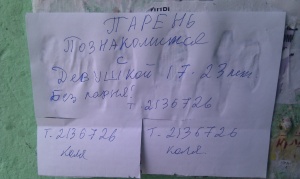 ПАРЕНЬ
Познакомимся
с
Девушкой 17-23 лет
Без парня!
Т. 2136726
Т-2136726
Коля
Т. 2136726
Коля